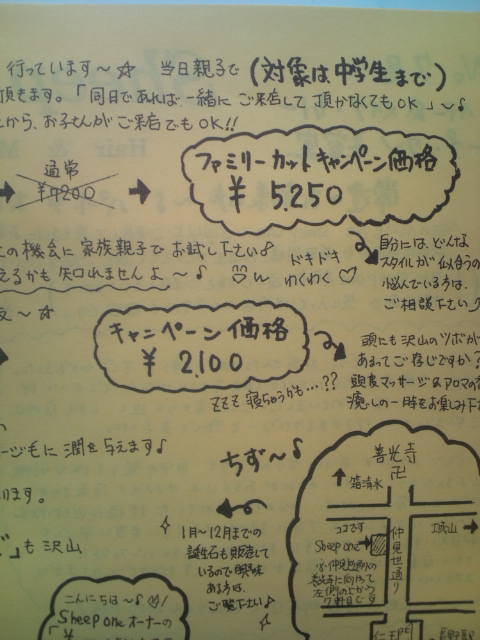 行っています～☆ 当日親子で (対象は中学生まで)
頂きます。「同日であれば、一緒にご来店して頂かなくてもOK」～♪
から、お子さんがご来店でもOK!!
通常
¥7200
ファミリーカットキャンペーン価格
¥ 5,250
この機会に家族親子でお試し下さい♪
えるかも知れませんよ～♪
ドキドキ
わくわく♡
自分には、どんな
スタイルが似合うの
悩んでいる方は、
ご相談下さい♪
～☆
キャンペーン価格
¥ 2,100
zzz 寝ちゃうかも…??
頭にも沢山のツボが
あるってご存じですか?
頭皮マッサージ&アロマの
癒しの一時をお楽しみ下
ージ毛に潤を与えます♪
ります。
も沢山
ちず～♪
1月～12月までの
誕生石も販売して
いるので興味
ある方は、
ご覧下さい♪
善光寺
卍
↑箱清水
ココです
Sheep one
仲見世通り
城山
こんにちは～♪
Sheep oneオーナーの